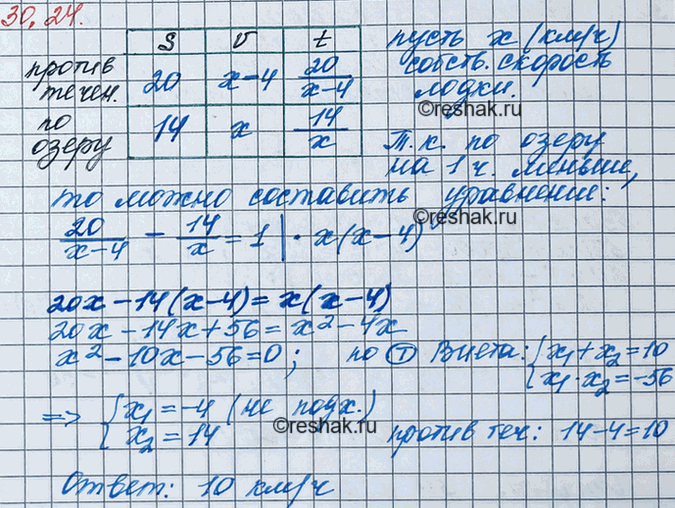 30.24.
S v t
против течен. 20 x-4 20/(x-4)
по озеру 14 x 14/x
пусть x (км/ч)
собств. скорость
лодки.
©reshak.ru
Т.к. по озеру
на 1 ч. меньше,
то можно составить уравнение:
20/(x-4) - 14/x = 1 | · x(x-4)
©reshak.ru
20x-14(x-4)=x(x-4)
20x-14x+56=x²-4x
x²-10x-56=0; по Ⓣ Виета: { x₁+x₂=10
x₁·x₂=-56
=> { x₁=-4 (не подх.)
x₂=14
©reshak.ru
против теч: 14-4=10
Ответ: 10 км/ч